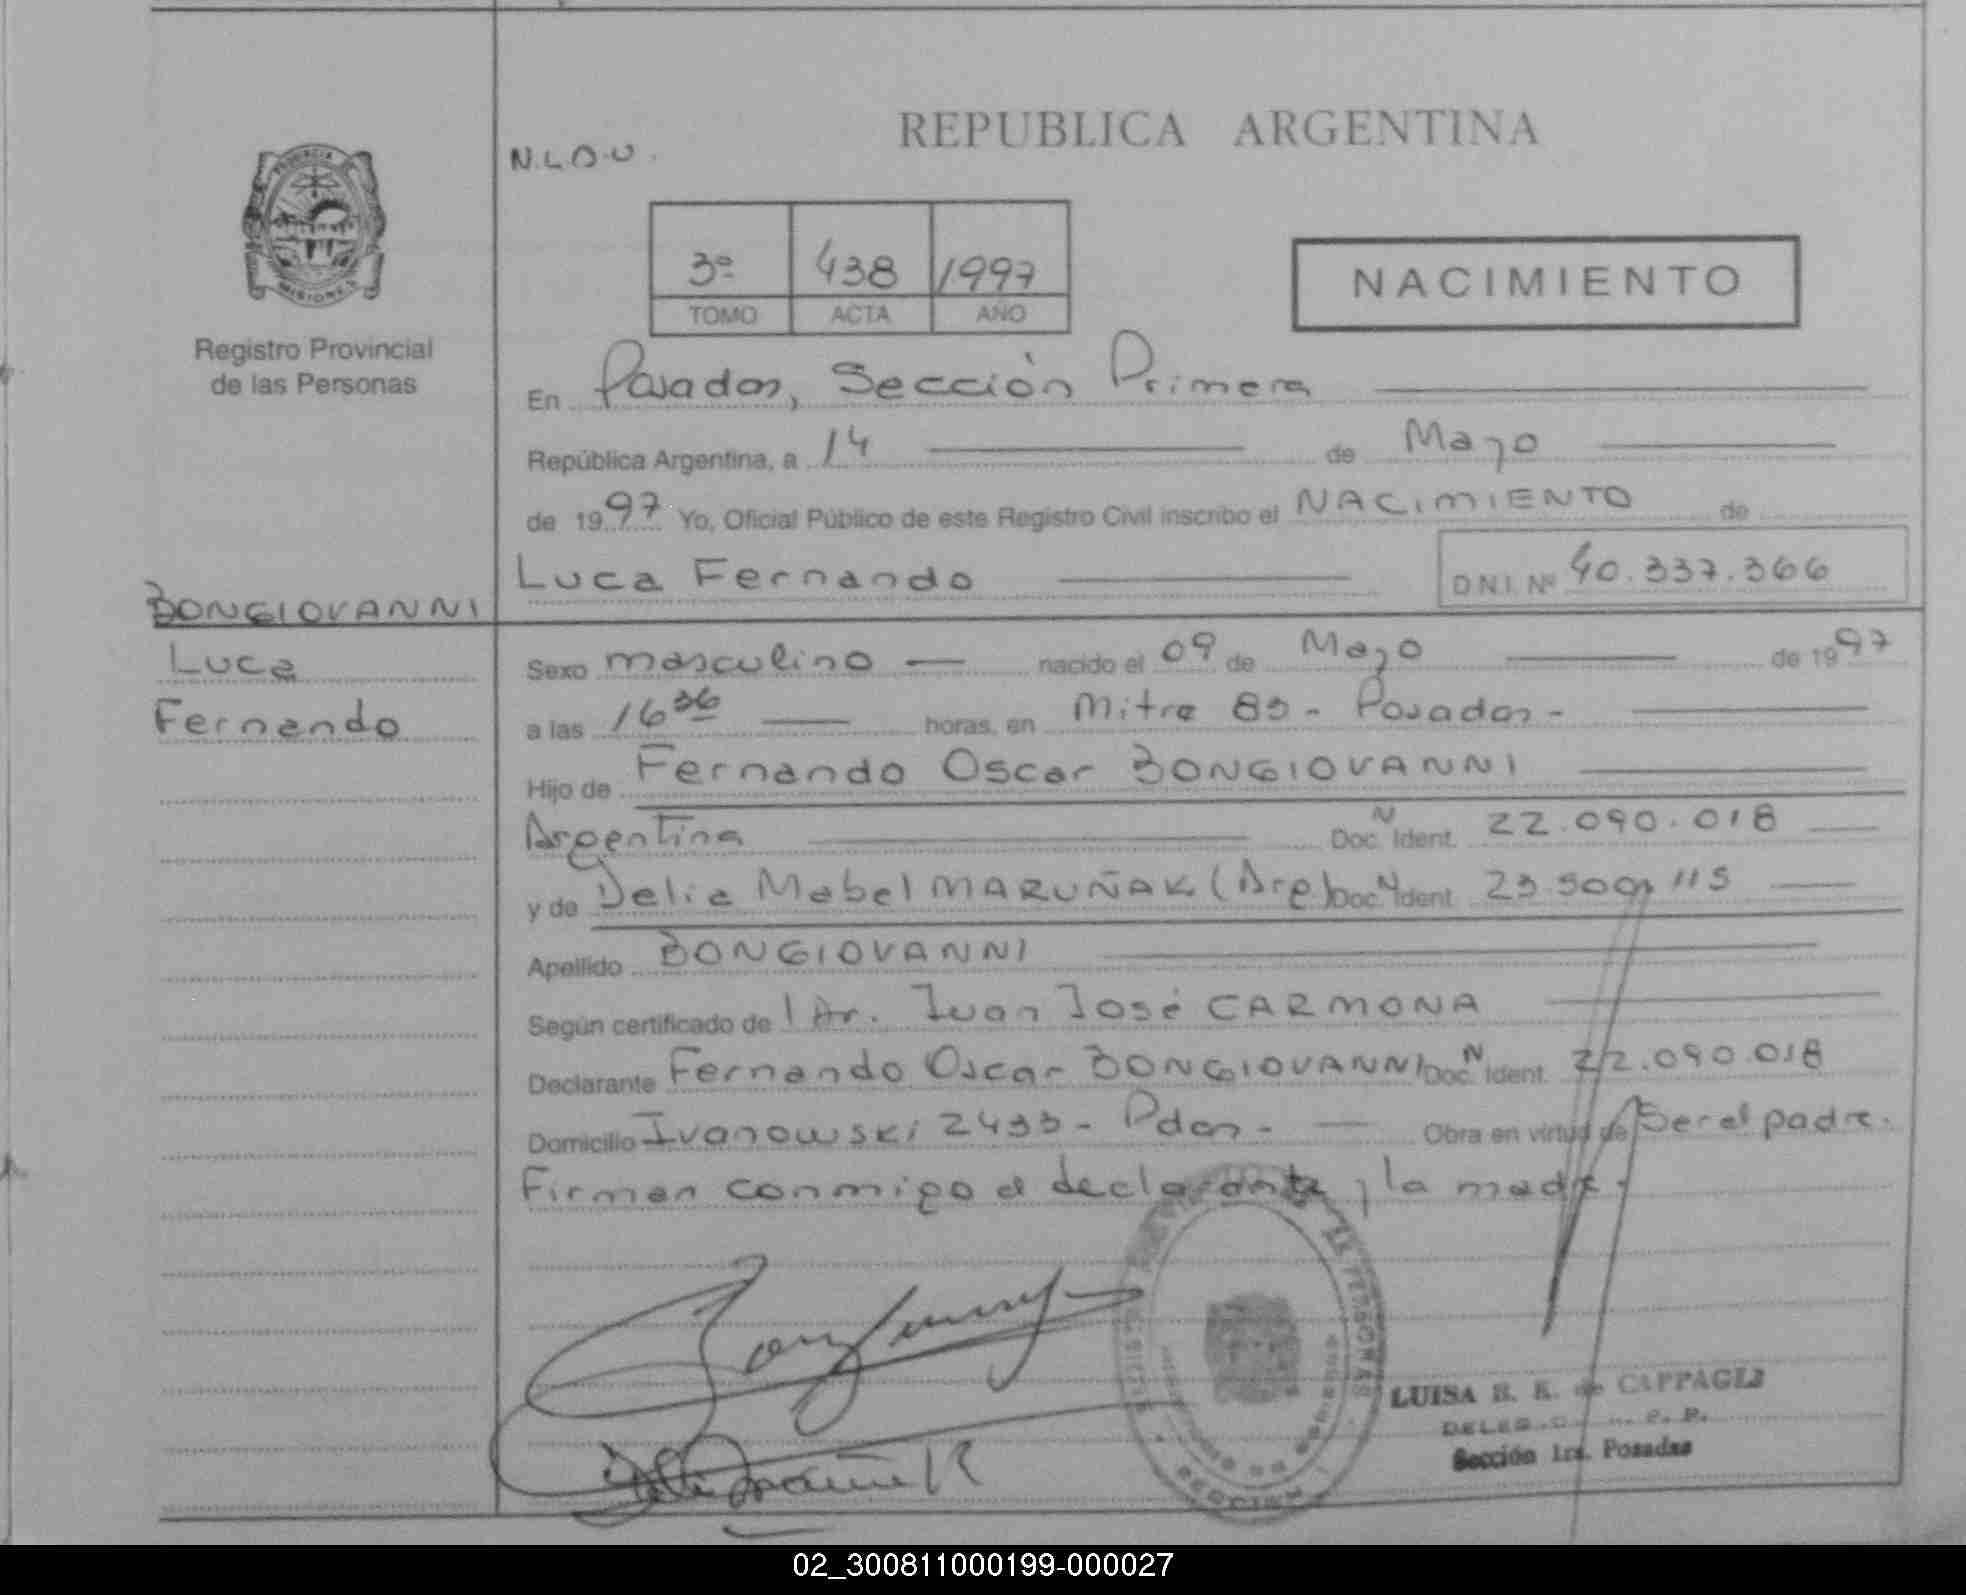 REPUBLICA ARGENTINA
N.L.D.U.
PROVINCIA DE MISIONES
Registro Provincial
de las Personas
3º 438 1997
TOMO ACTA AÑO
NACIMIENTO
En Posadas, Sección Primera
República Argentina, a 14 de Mayo
de 1997 Yo, Oficial Público de este Registro Civil inscribo el NACIMIENTO de
Luca Fernando D.N.I. Nº 40.337.366
BONGIOVANNI
Luca
Fernando
Sexo masculino nacido el 09 de Mayo de 1997
a las 16 36 horas, en Mitre 83 - Posadas -
Hijo de Fernando Oscar BONGIOVANNI
Argentina Doc. N Ident. 22.090.018
y de Delia Mabel MARUÑAK (Arg) Doc. N Ident. 23.500.115
Apellido BONGIOVANNI
Según certificado de l Dr. Juan José CARMONA
Declarante Fernando Oscar BONGIOVANNI Doc. N Ident. 22.090.018
Domicilio Ivanowski 2433 - Pdas - Obra en virtud de Ser el padre.
Firman conmigo el declarante y la madre.
LUISA de CAPPAGLI
Sección 1ra. Posadas
02_300811000199-000027